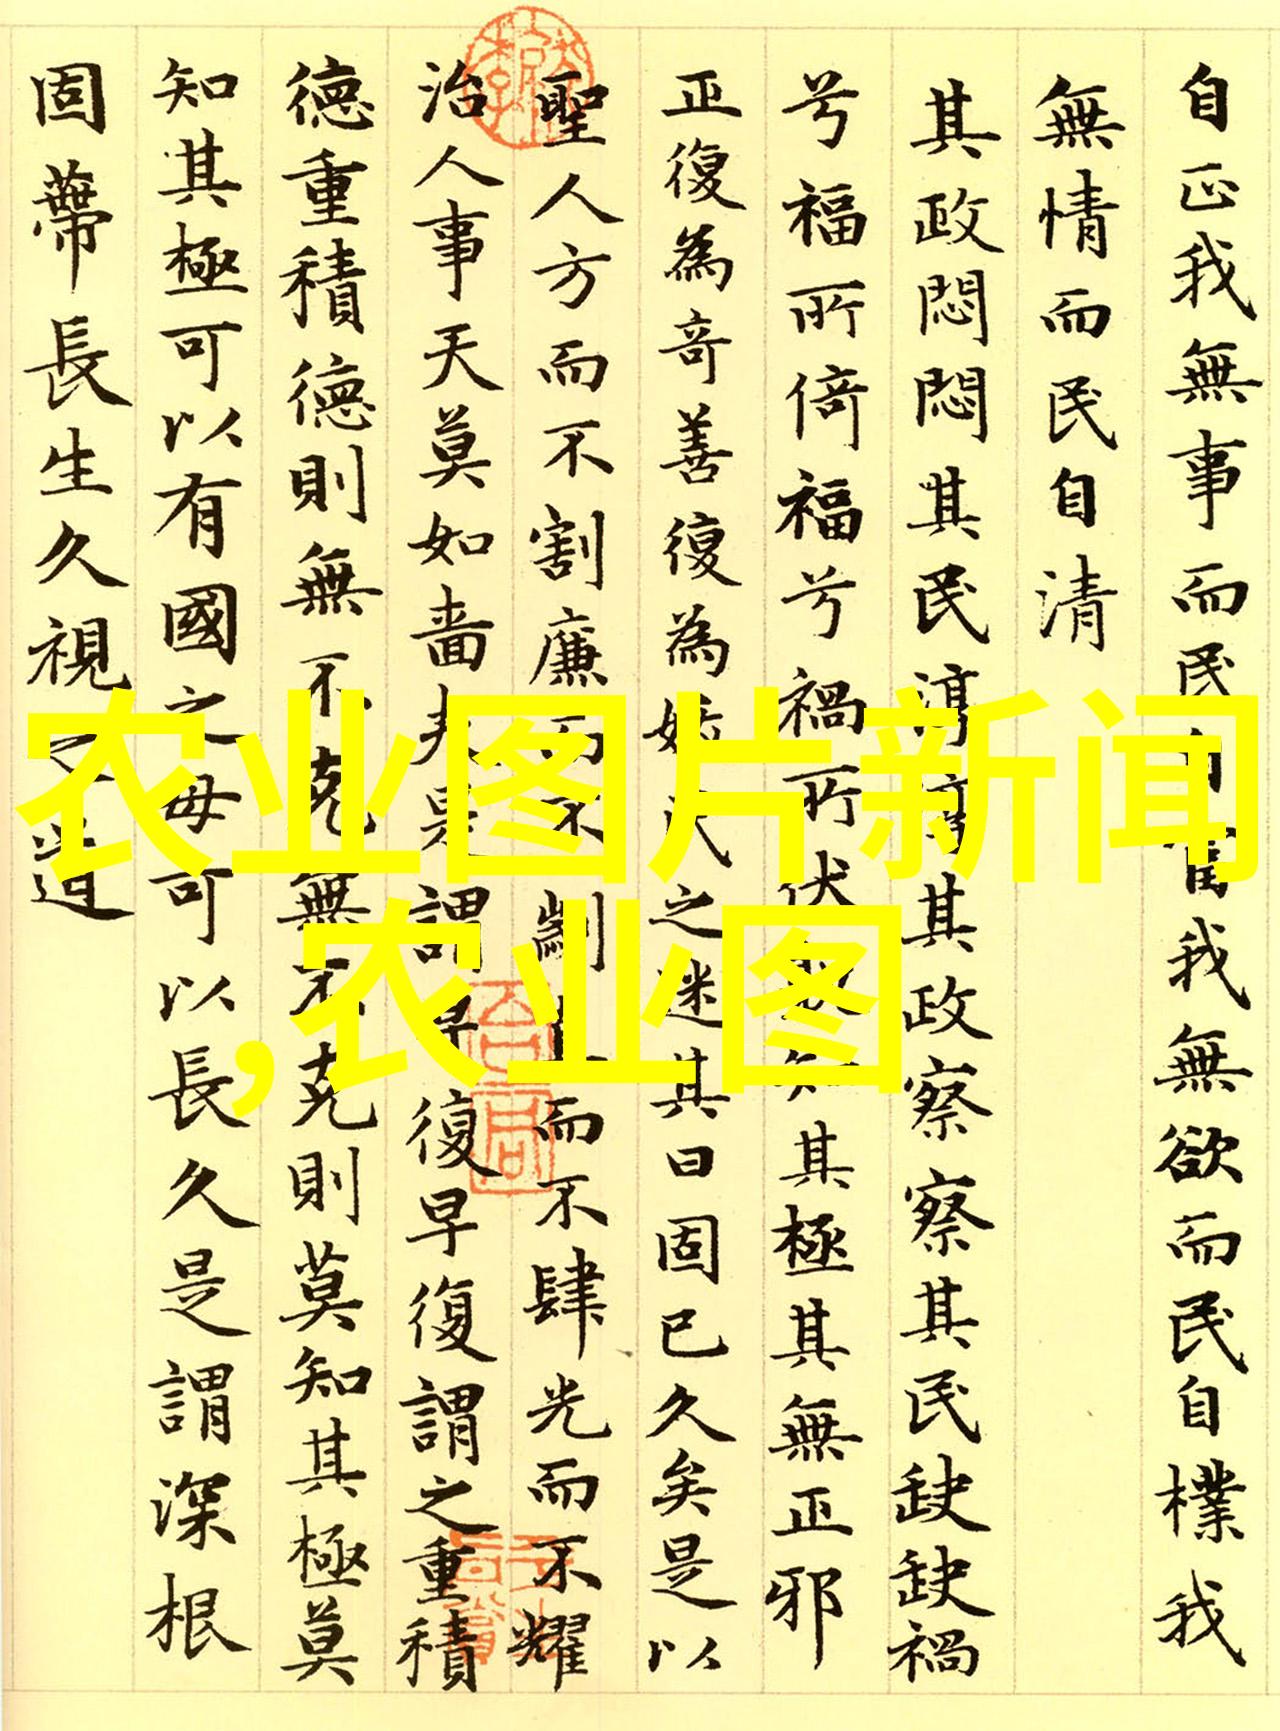 自正我無事而民自富我無欲而民自樸我
無情而民自清
其政悶悶其民淳淳其政察察其民缺缺禍
兮福所倚福兮禍所伏孰知其極其無正邪
正復為奇善復為妖民之迷其日固已久矣是以
聖人方而不割廉而不劌直而不肆光而不耀
治人事天莫如嗇夫是謂早復早復謂之重積
德重積德則無不克無不克則莫知其極莫
知其極可以有國之母可以長久是謂深根
固蔕長生久視之道
农业图片新闻
,农业图